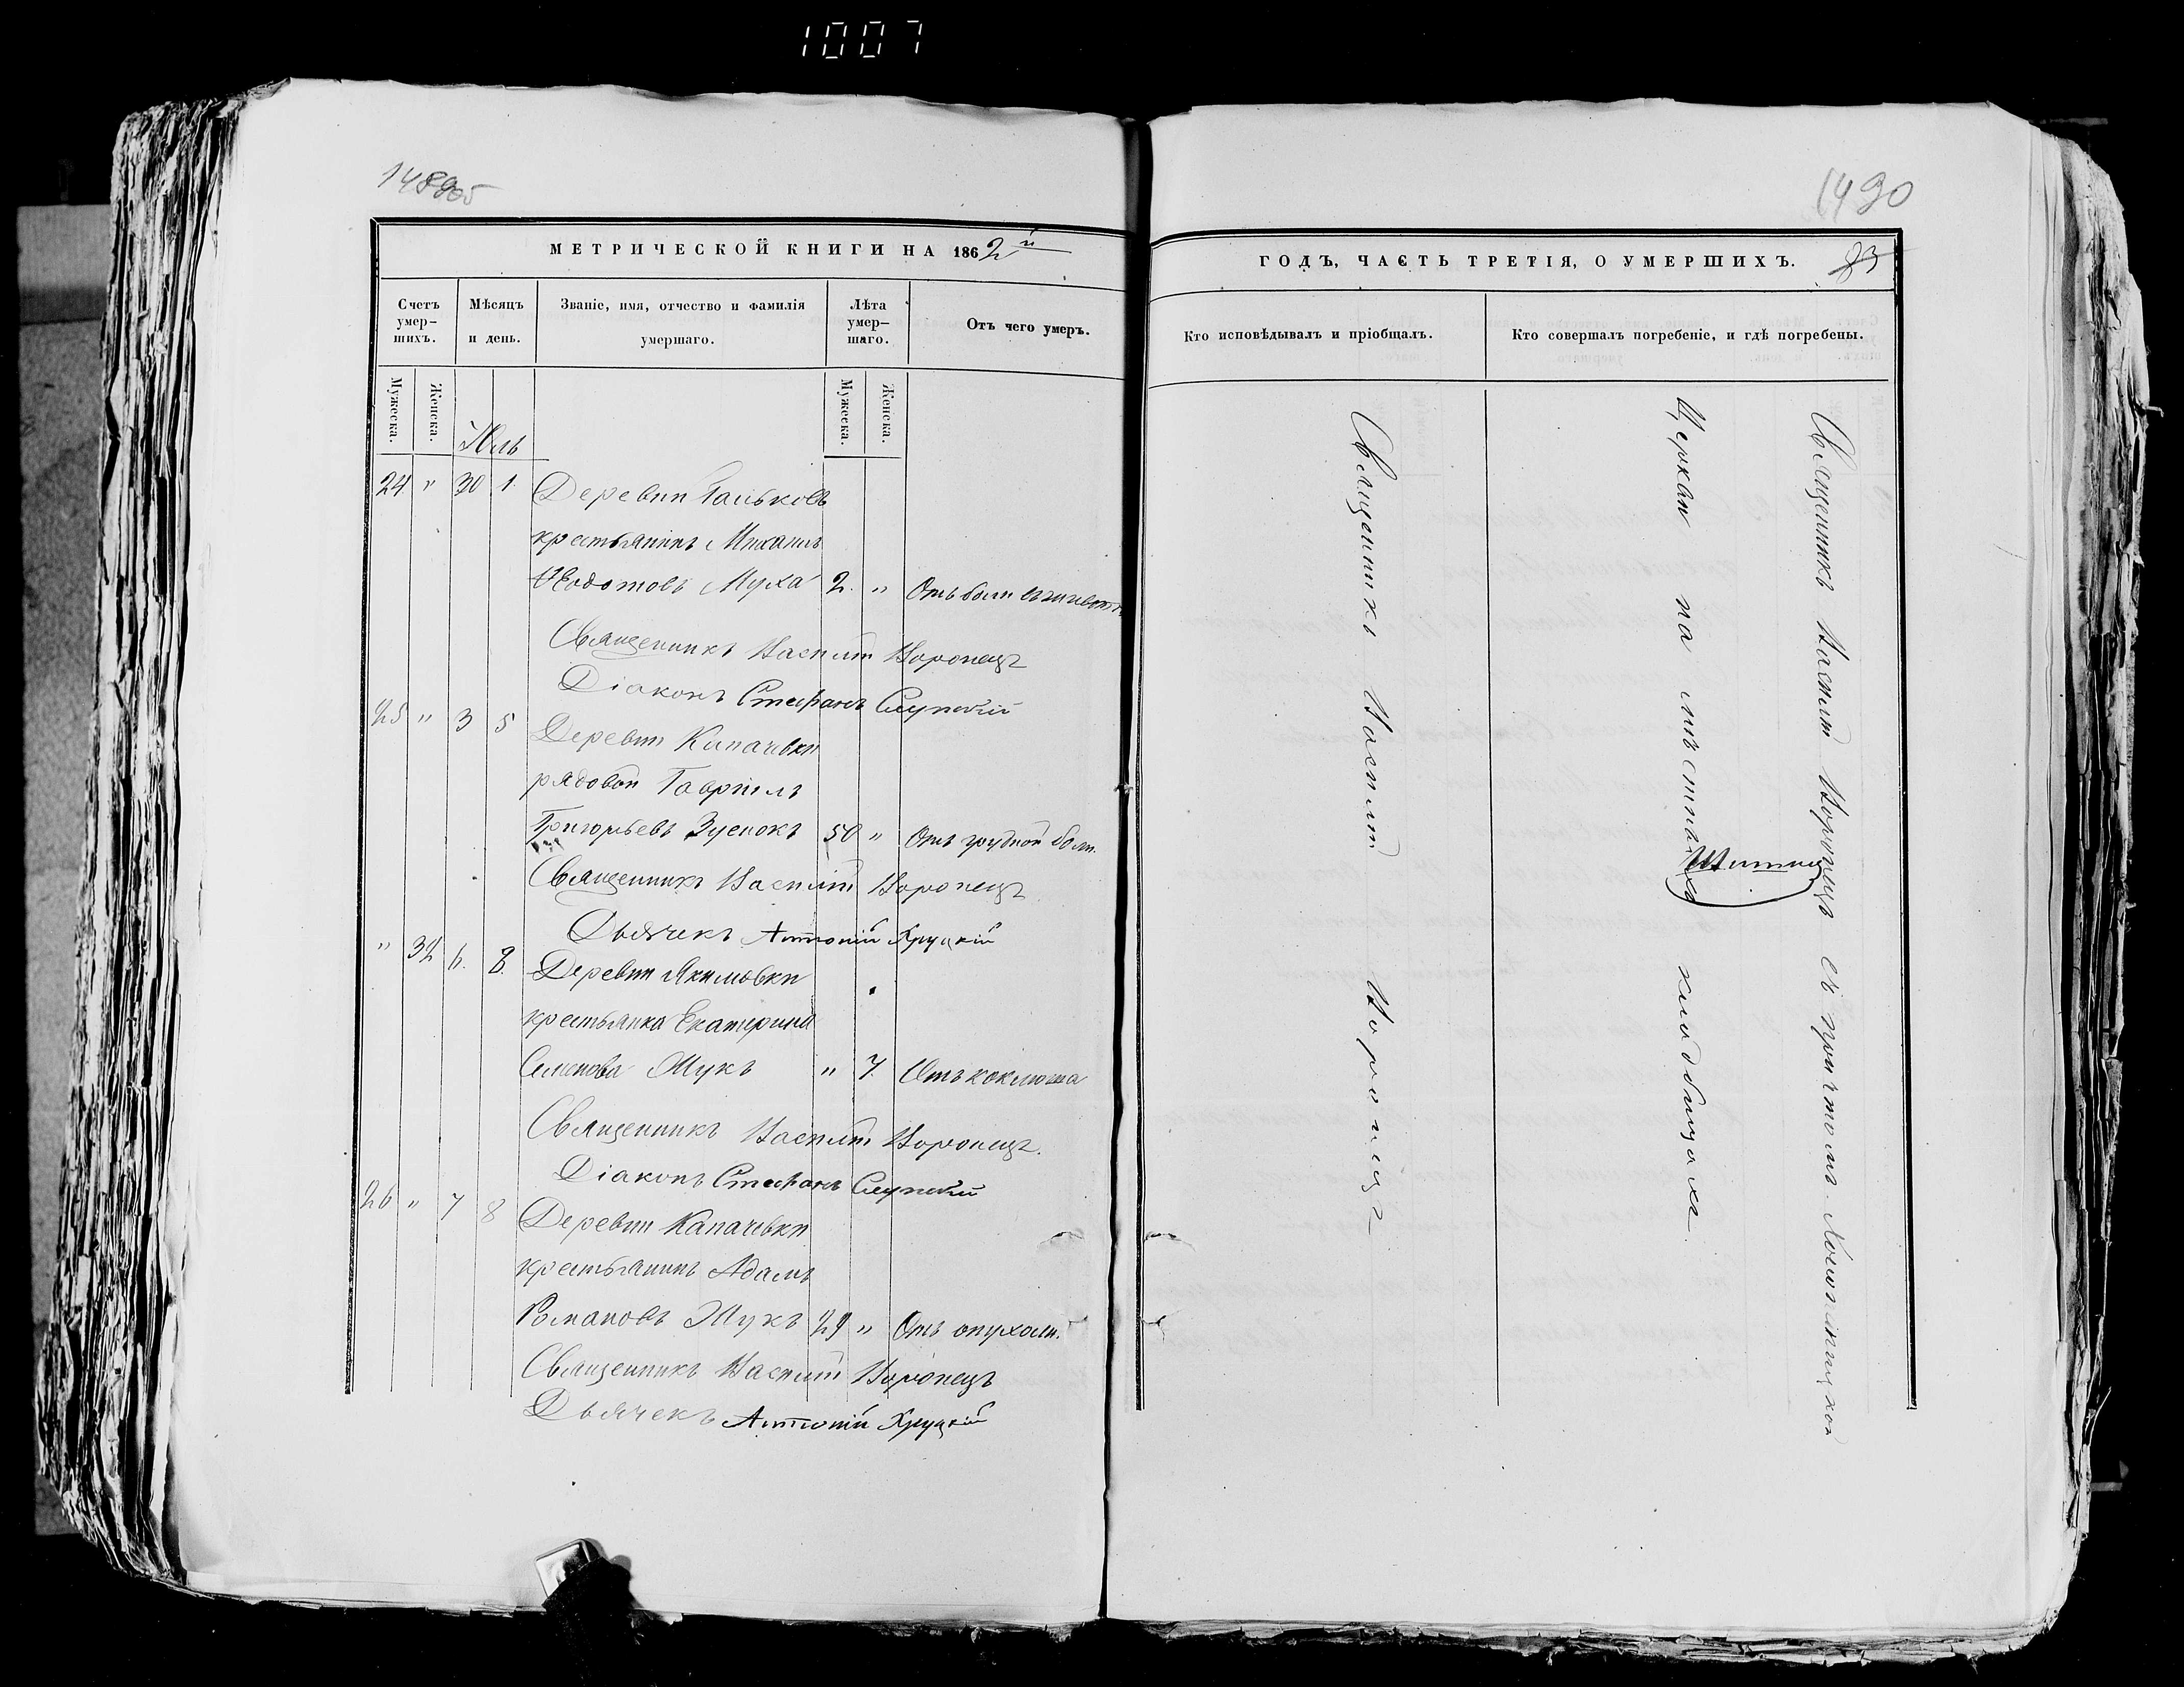 1007
1490
МЕТРИЧЕСКОЙ КНИГИ НА 1862й
ГОДЪ, ЧАСТЬ ТРЕТІЯ, О УМЕРШИХЪ. 83
Счетъ умер-
шихъ.
Мѣсяцъ
и день.
Званіе, имя, отчество и фамилія
умершаго.
Лѣта
умер-
шаго.
Отъ чего умеръ.
Кто исповѣдывалъ и пріобщалъ.
Кто совершалъ погребеніе, и гдѣ погребены.
Мужеска.
Женска.
Мужеска.
Женска.
Юль
24 " 30 1. Деревни
крестьянинъ Михаилъ
Ѳеодотовъ Муха 2. " Отъ боли въ животѣ
Священникъ Василій Воронецъ
Діаконъ Стефанъ Слупскій
25 " 3 5 Деревни
рядовой Гавріилъ
Григорьевъ Зуенокъ 50 " Отъ грудной боли.
Священникъ Василій Воронецъ
Дьячекъ Антоній Хруцкій
" 32 6. 8. Деревни Якимовки
крестьянка Екатерина
Семенова Жукъ " 7. Отъ коклюша
Священникъ Василій Воронецъ.
Діаконъ Стефанъ Слупскій
26 " 7 8 Деревни Капачевки
крестьянинъ Адамъ
Романовъ Жукъ 29 " Отъ опухоли.
Священникъ Василій Воронецъ
Дьячекъ Антоній Хруцкій
Священникъ Василій Воронецъ
Священникъ Василій Воронецъ съ причтомъ
Церкви на мѣстныхъ кладбищахъ.